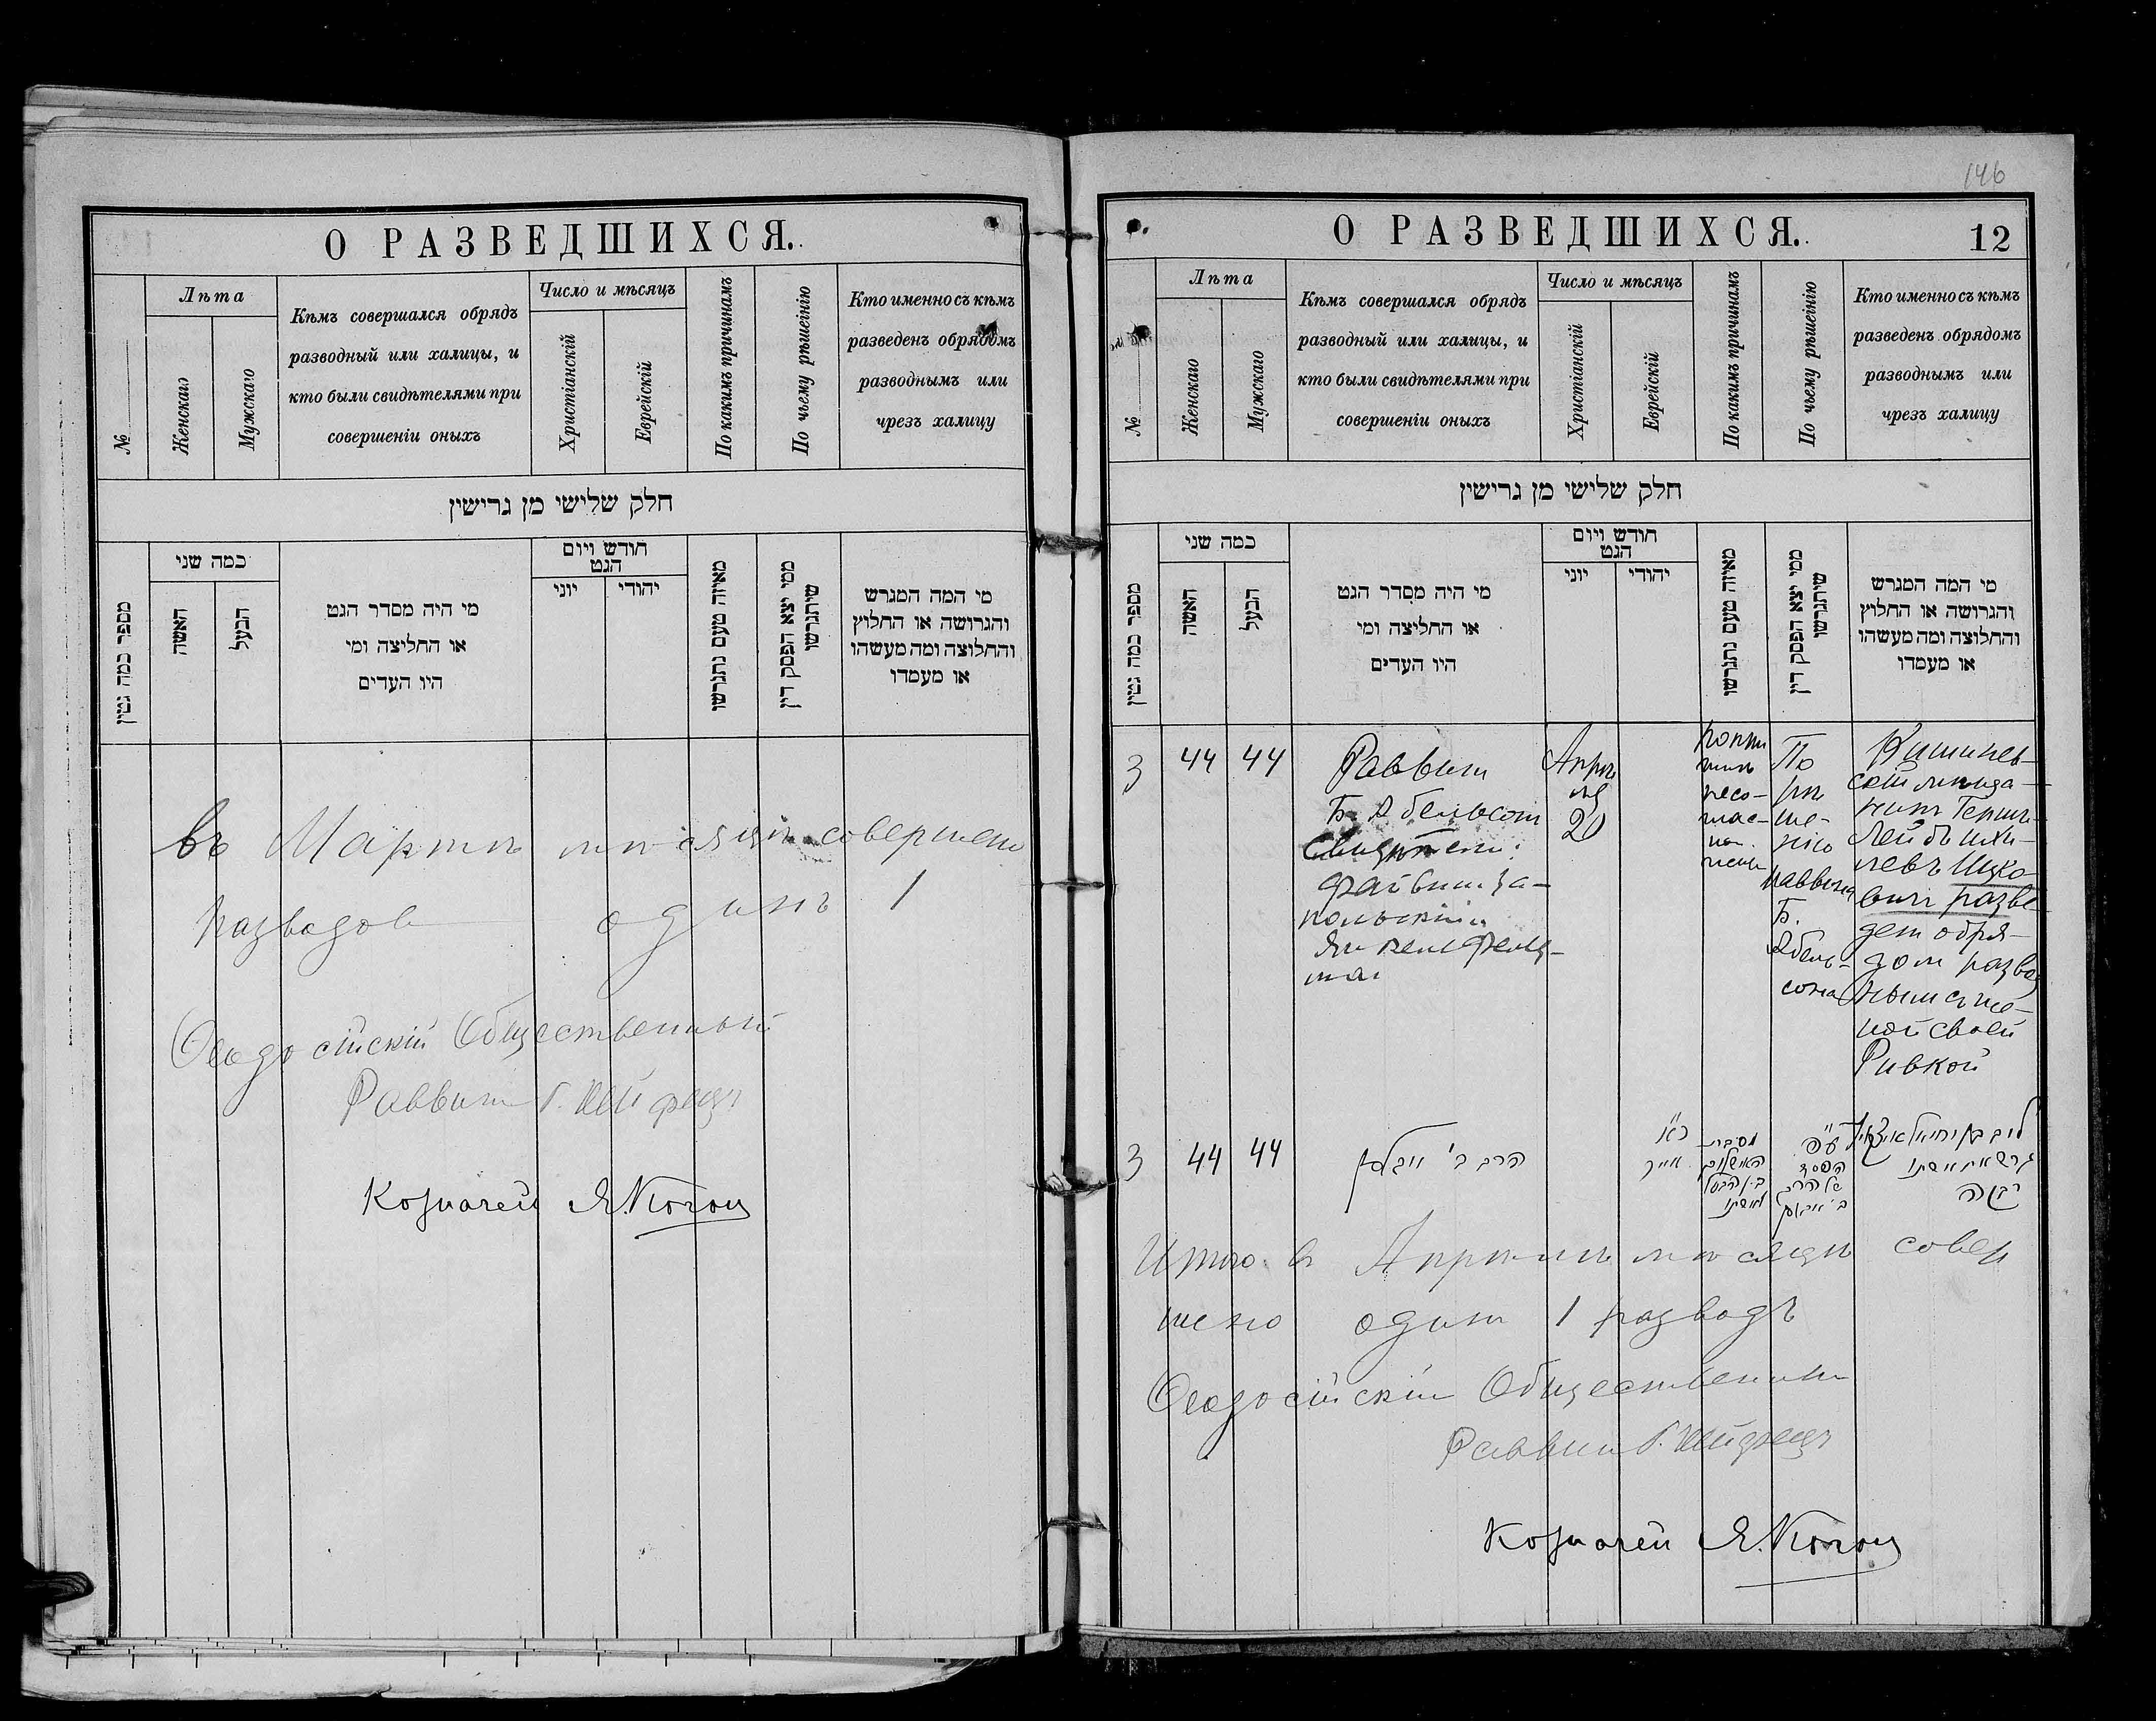 О РАЗВЕДШИХСЯ.
№
Лѣта
Женскаго
Мужскаго
Кѣмъ совершался обрядъ
разводный или халицы, и
кто были свидѣтелями при
совершеніи оныхъ
Число и мѣсяцъ
Христіанскій
Еврейскій
По какимъ причинамъ
По чьему рѣшенію
Кто именно съ кѣмъ
разведенъ обрядомъ
разводнымъ или
чрезъ халицу
חלק שלישי מן גרישין
מספר כמה גטין
כמה שני
האשה
הבעל
מי היה מסדר הגט
או החליצה ומי
היו העדים
חודש ויום
הגט
יוני
יהודי
מאיזה טעם נתגרשו
ממי יצא הפסק דין
שיתגרשו
מי המה המגרש
והגרושה או החלוץ
והחלוצה ומה מעשהו
או מעמדו
въ Мартѣ мѣсяцѣ совершено
разводов одинъ 1
Ѳеодосійскій Общественный
Раввин
Казначей Я. Коган
146
О РАЗВЕДШИХСЯ.
12
№
Лѣта
Женскаго
Мужскаго
Кѣмъ совершался обрядъ
разводный или халицы, и
кто были свидѣтелями при
совершеніи оныхъ
Число и мѣсяцъ
Христіанскій
Еврейскій
По какимъ причинамъ
По чьему рѣшенію
Кто именно съ кѣмъ
разведенъ обрядомъ
разводнымъ или
чрезъ халицу
חלק שלישי מן גרישין
מספר כמה גטין
כמה שני
האשה
הבעל
מי היה מסדר הגט
או החליצה ומי
היו העדים
חודש ויום
הגט
יוני
יהודי
מאיזה טעם נתגרשו
ממי יצא הפסק דין
שיתגרשו
מי המה המגרש
והגרושה או החלוץ
והחלוצה ומה מעשהו
או מעמדו
3
44
44
Раввин
Б. Абельсон
Свидѣтели:
Файвиш За-
польскій и
Апрѣ
ля
20
несо-
глас-
По
рѣ
ше-
нію
раввина
Б.
Абель-
сона
Кишинев-
скій мѣща-
нин Герш-
Лейб Ихи-
левъ Ицко-
вич разве
ден обря-
дом развод
ным с же-
ной своей
Ривкой
3
44
44
הרב ב'
אייר
ע"פ
הפסד
של הרב
גרש את אשתו
רבקה
Итого в Апрѣлѣ мѣсяцѣ совер
шено один 1 разводъ
Ѳеодосійскій Общественный
Раввин
Казначей Я. Коган